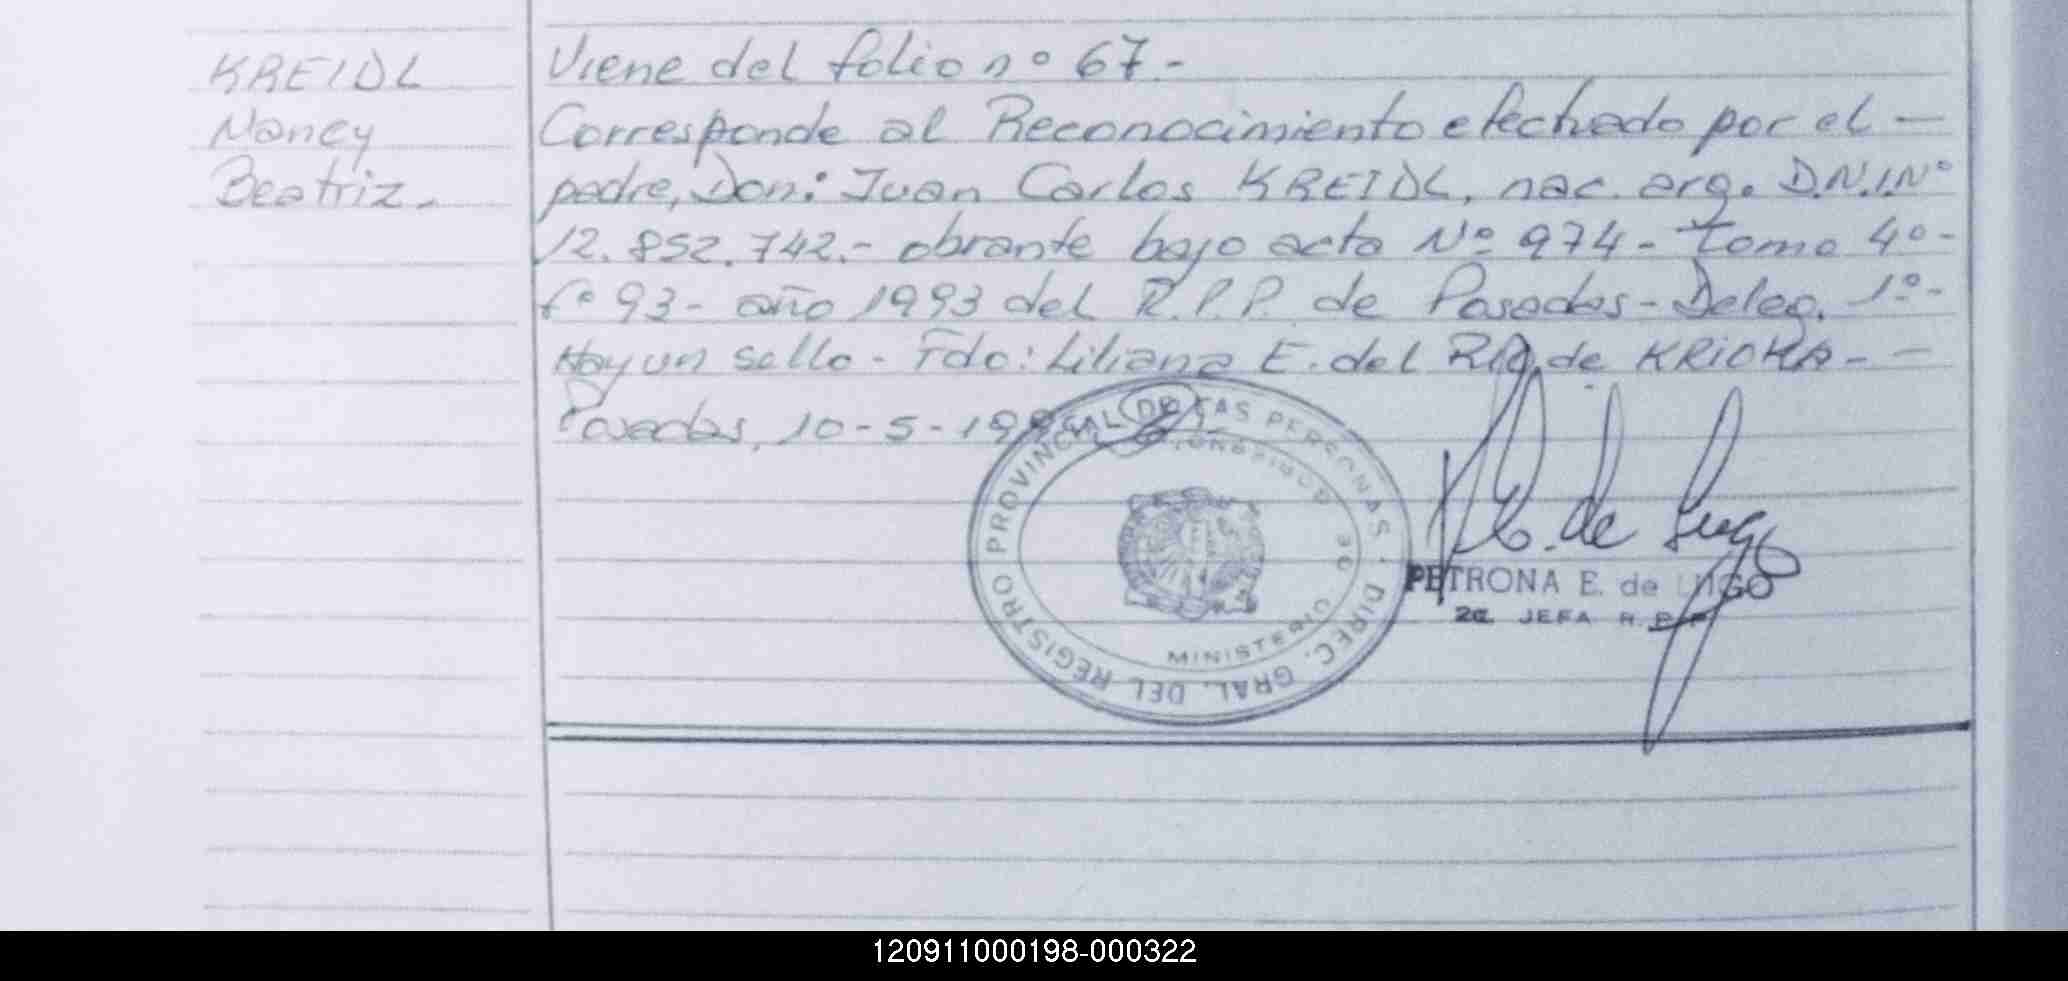 KREIDL
Nancy
Beatriz.-
Viene del folio nº 67.-
Corresponde al Reconocimiento efectuado por el —
padre, Don: Juan Carlos KREIDL, nac. arg. D.N.I.Nº
12.852.742.- obrante bajo acta Nº 974- Tomo 4º-
fº 93- año 1993 del R.P.P. de Posadas- Deleg. 1º-
Hay un sello- Fdo: Liliana E. del Rio de
Posadas, 10-5-
DIREC. GRAL. DEL REGISTRO PROVINCIAL DE LAS PERSONAS
MINISTERIO DE GOBIERNO
P. E. de Lugo
PETRONA E. de LUGO
2a JEFA R.P.P.
120911000198-000322